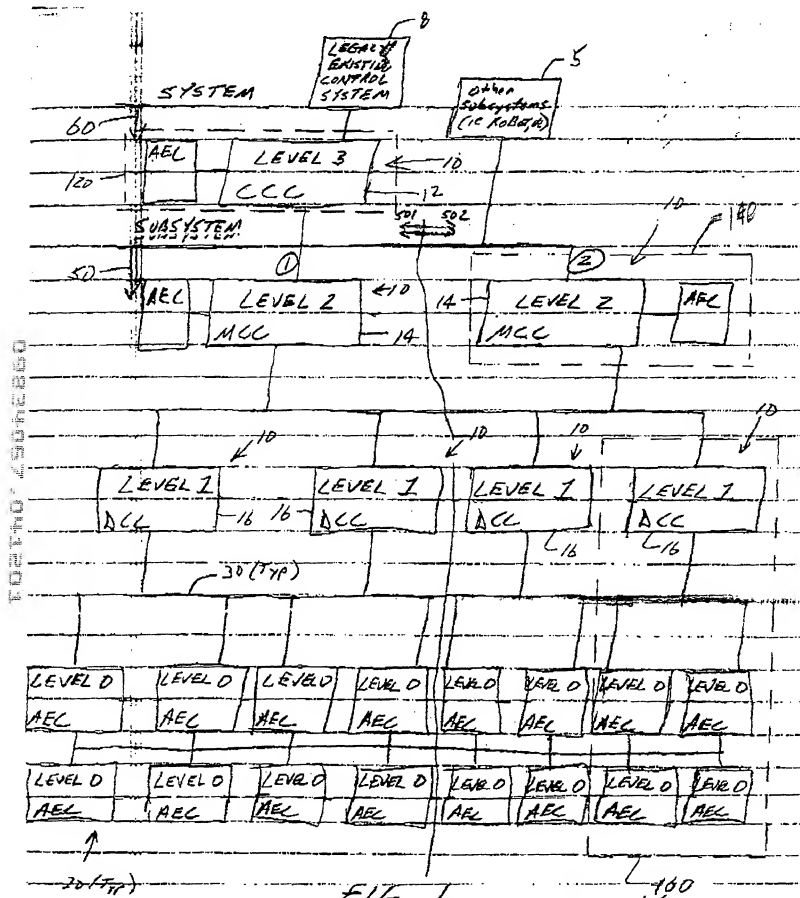 8
LEGACY
EXISTING
CONTROL
SYSTEM
5
Other
Subsystems
(ie ROBOTICS)
SYSTEM
60
AEC
LEVEL 3
CCC
10
12
120
501 502
SUBSYSTEM
10
140
50
1
2
AEC
LEVEL 2
MCC
10
14
14
LEVEL 2
MCC
AEC
10
10
10
10
LEVEL 1
DCC
16
16
LEVEL 1
DCC
LEVEL 1
DCC
16
LEVEL 1
DCC
16
30 (TYP)
LEVEL 0 LEVEL 0 LEVEL 0 LEVEL 0 LEVEL 0 LEVEL 0 LEVEL 0 LEVEL 0
AEC AEC AEC AEC AEC AEC AEC AEC
LEVEL 0 LEVEL 0 LEVEL 0 LEVEL 0 LEVEL 0 LEVEL 0 LEVEL 0 LEVEL 0
AEC AEC AEC AEC AEC AEC AEC AEC
20 (TYP)
FIG 1
160